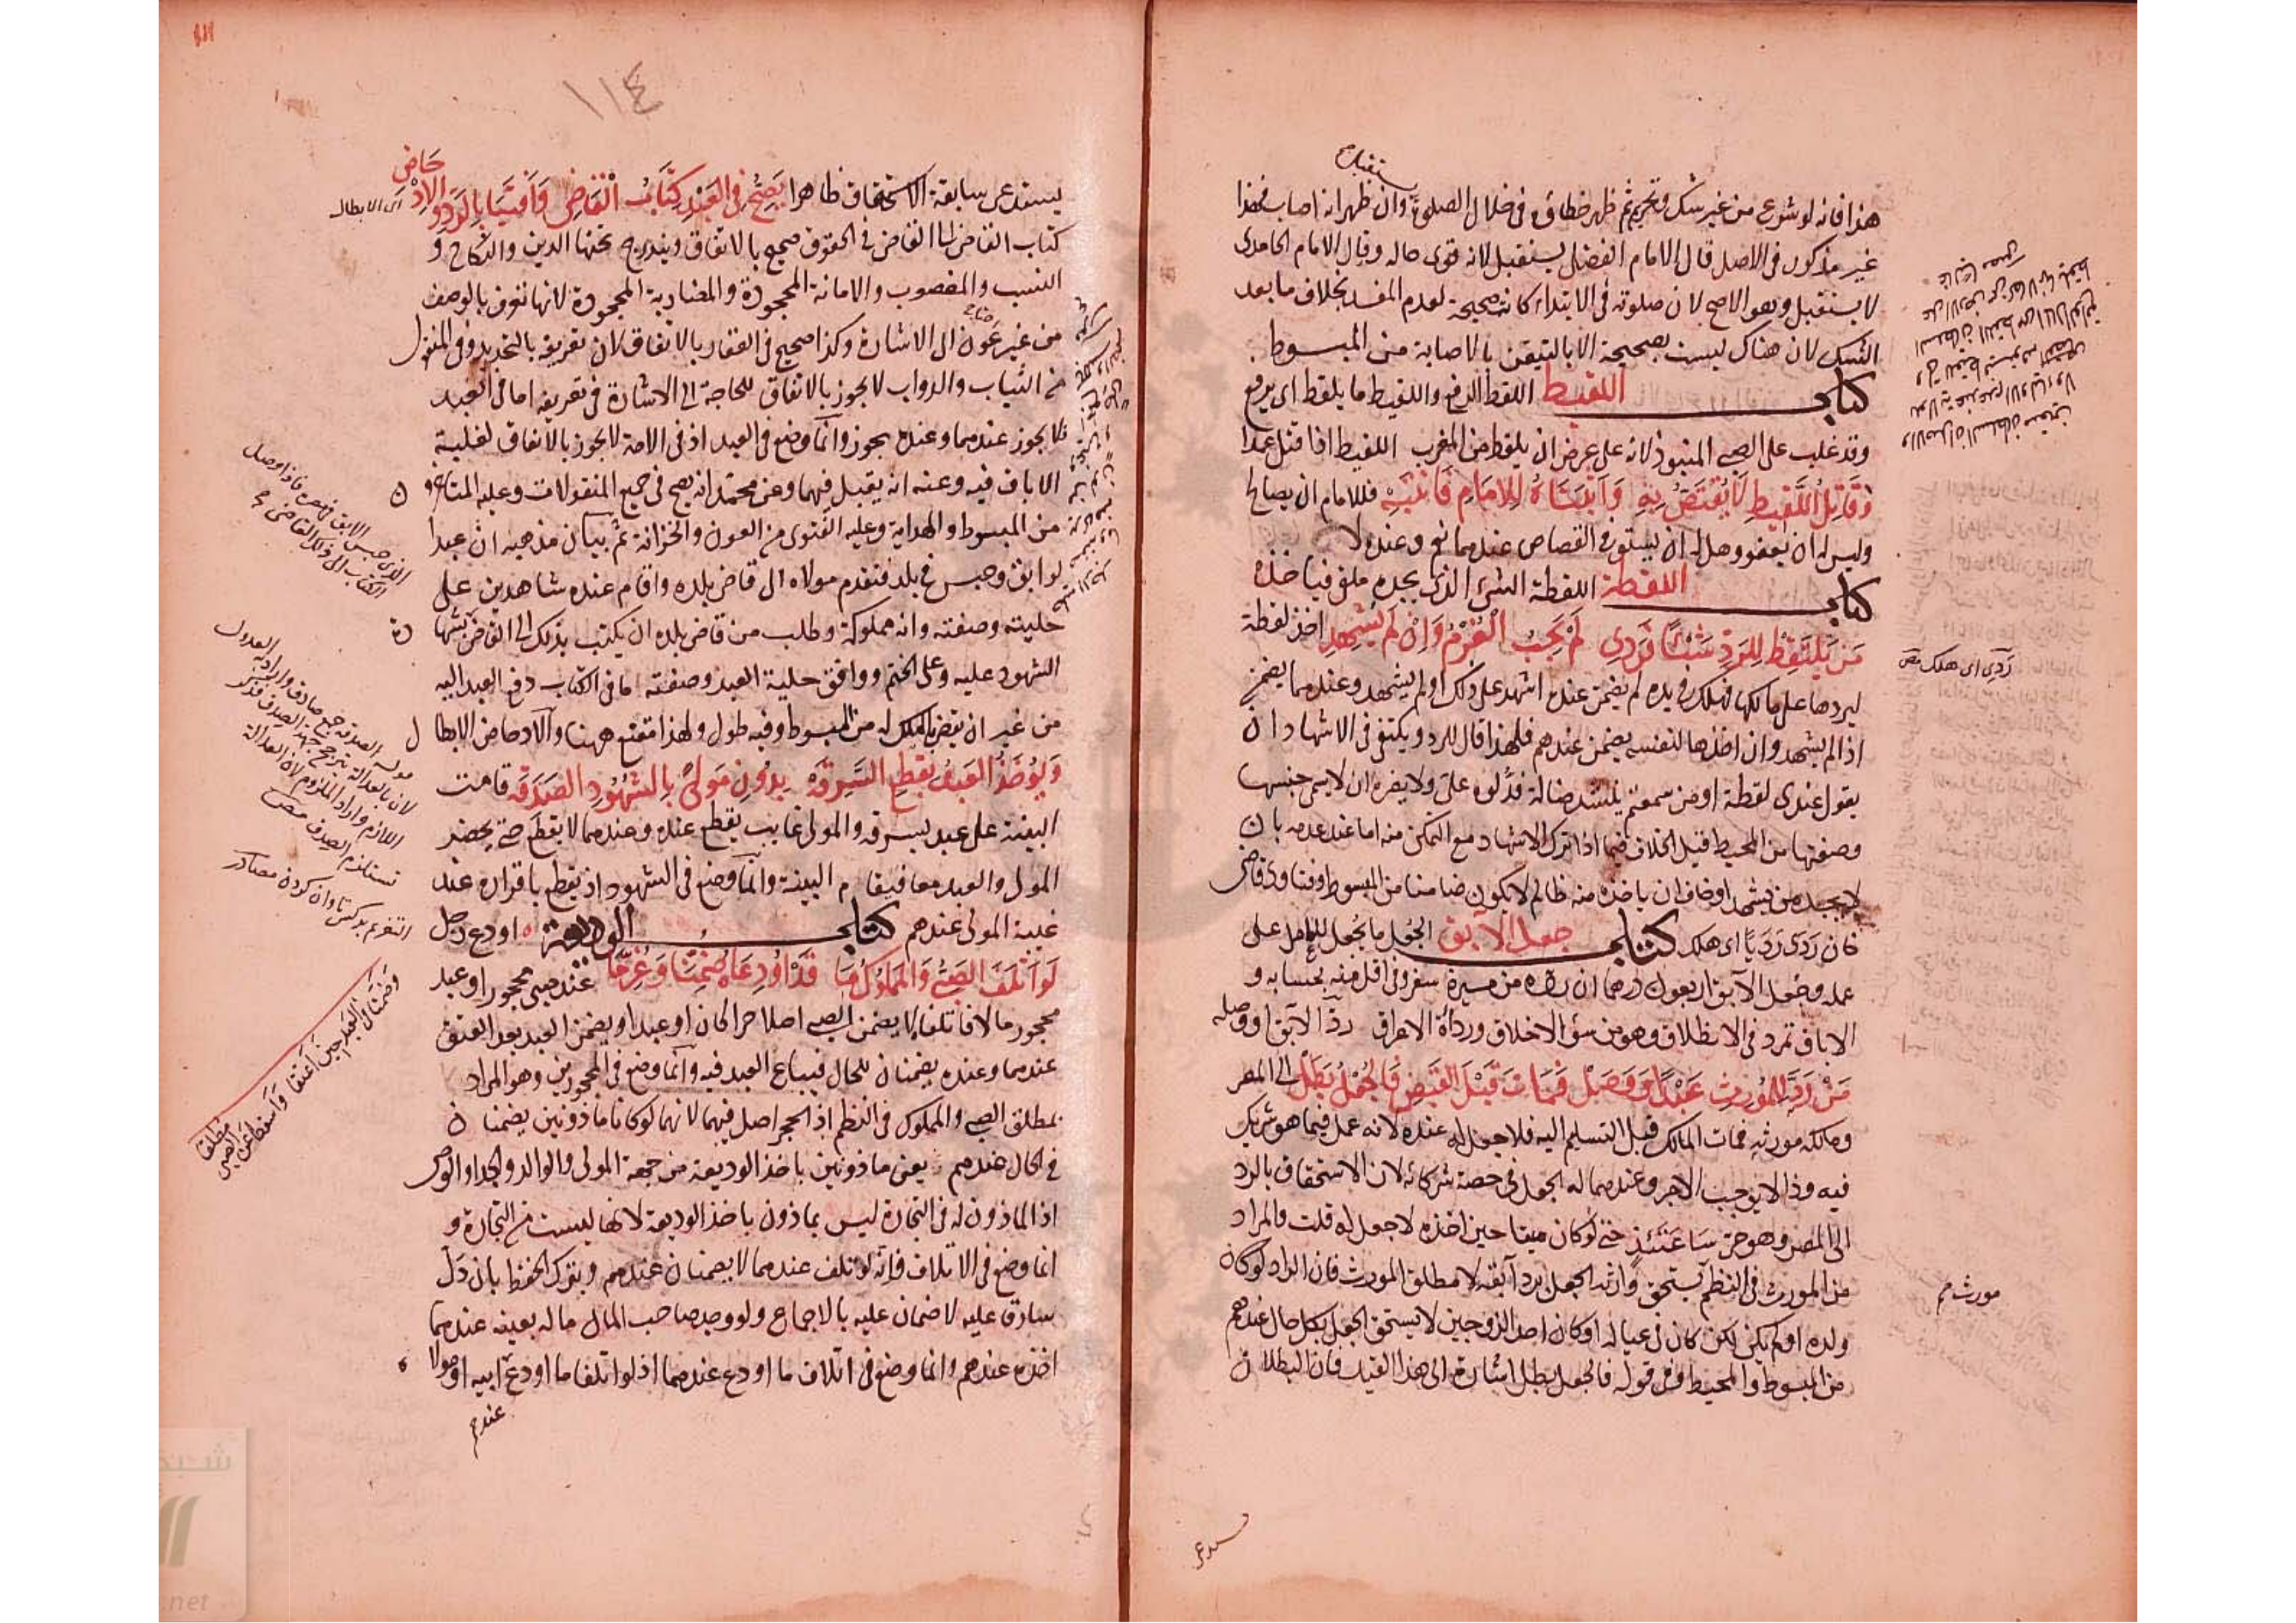 يستقبل
هذا فانه لو شرع من غير شك وتحرى ثم ظهر خطاؤه في خلال الصلوة وان ظهر انه اصاب فهذا
غير مذكور في الاصل قال الامام الفضلى يستقبل لانه قوى حاله وقال الامام الحامدى
لا يستقبل وهو الاصح لان صلوته في الابتداء كانت صحيحة لعدم المفسد بخلاف ما بعد
الشك لان هناك ليست بصحيحة الا بالتيقن بالاصابة من المبسوط
كتاب اللقيط اللقط الرفع واللقيط ما يلقط اى يرفع
وقد غلب على الصبى المنبوذ لانه على عرض ان يلقط من المغرب اللقيط اذا قتل عمدا
وَقَاتِلُ اللَّقِيطِ لَا يُقْتَصُّ بِهِ فللامام ان يصالح
وليس له ان يعفو وهل له ان يستوفى القصاص عندهما نعم وعنده لا
كتاب اللقطة اللقطة الشئ الذى يجده ملقى فياخذه
مَنْ يَلْتَقِطْ لِلرَّدِّ شَيْئًا فَرَدِى لَمْ يَجِبُ الْغُرْمُ وَاِنْ لَمْ يُشْهِدِ اخذ لقطة
رَدِى اى هلك
ليردها على مالكها فهلك في يده لم يضمن عنده اشهد على ذلك او لم يشهد وعندهما يضمن
اذا لم يشهد وان اخذها لنفسه يضمن عندهم فلهذا قال للرد ويكتفى في الاشهاد ان
يقول عندى لقطة او من سمعتم ينشد ضالة فدلوه على ولا يضره ان لا يسمى جنسها
وصفتها من المحيط قيل الخلاف فيما اذا ترك الاشهاد مع التمكن منه اما عند عدمه بان
لا يجد من يشهد او خاف ان ياخذه منه ظالم لا يكون ضامنا من المبسوط وفتاوى قاضى
خان رَدَى رَدَيًا اى هلك كتاب جعل الآبق الجُعل ما يُجعل للعامل على
عمله وجُعل الآبق اربعون درهما ان رده من مسيرة سفر وفى اقل منه بحسابه و
الاباق تمرد في الانطلاق وهو من سوء الاخلاق ورداءة الاعراق ردّ الآبق او وصله
مَنْ رَدَّ لِلْمُورِثِ عَبْدًا وَوَصَلْ فَمَاتَ قَبْلَ القَبْضِ فَالجُعْلُ بَطَلْ الى المصر
ومالكه مورثه فمات المالك قبل التسليم اليه فلا جعل له عنده لانه عمل فيما هو شريك
فيه وذا لا يوجب الاجر وعندهما له الجعل في حصة شركائه لان الاستحقاق بالرد
الى المصر وهو حىّ سَاعَتَئِذٍ حتى لو كان ميتا حين اخذه لا جعل له قلت والمراد
من المورث في النظم يستحق وارثه الجعل برد آبقه لا مطلق المورث فان الراد لو كان
مورث م
ولده او لم يكن لكن كان في عياله او كان احد الزوجين لا يستحق الجعل بكل حال عندهم
من المبسوط والمحيط وفى قوله فالجعل بطل اشارة الى هذا القيد فان البطلان
يستدعى
١١٤
يستدعى سابقة الاستحقاق ظاهرا يَصِحُّ فِى العَبْدِ كِتَابُ الْقَاضِى
اى الابطال
كتاب القاضى الى القاضى في الحقوق صحيح بالاتفاق ويندرج تحتها الدين والنكاح و
النسب والمغصوب والامانة المجحودة والمضاربة المجحودة لانها تعرف بالوصف
من غير عون الى الاشارة وكذا صحيح في العقار بالاتفاق لان تعريفه بالتحديد وفى المنقول
من الثياب والدواب لا يجوز بالاتفاق للحاجة الى الاشارة في تعريفه اما في العبد
فلا يجوز عندهما وعنده يجوز وانما وضع في العبد اذ في الامة لا يجوز بالاتفاق لغلبة
الاباق فيه وعنه انه يقبل فيهما وعن محمد انه يصح في جميع المنقولات وعليه المتاخرون
من المبسوط والهداية وعليه الفتوى من العون والخزانة ثم بيان مذهبه ان عبدا
لو ابق وحبس في بلد فتقدم مولاه الى قاضى بلده واقام عنده شاهدين على
حليته وصفته وانه مملوكه وطلب من قاضى بلده ان يكتب بذلك الى القاضى
الشهود عليه وعلى الختم ووافق حلية العبد وصفته ما في الكتاب دفع العبد اليه
من غير ان يقضى بالملك له من المبسوط وفيه طول ولهذا مقنع ههنا والادحاض الابطال
وَيُؤخَذُ العَبْدُ بِقَطْعِ السَّرِقَة بِدُونِ مَولًى بِالشُّهُودِ الصَّدَقَة قامت
البينة على عبد بسرقة والمولى غايب يقطع عنده وعندهما لا يقطع حتى يحضر
المولى والعبد معا فيقام البينة وانما وضع في الشهود اذ يقطع باقراره عند
غيبة المولى عندهم كتاب الوديعة اودع رجل
لَوْ اَتْلَفَ الصَّبِىُّ وَالمَملُوكُ مَا قَدْ اُودِعَاهُ ضُمِّنَا وَغُرِّمَا عند صبى محجور او عبد
وَضَمَّنَا العَبْدَ حِينَ اَعْتَقَا وَاَسْقَطَا عَنِ الصَّبِىِّ مُطْلَقَا
محجور مالا فاتلفا لا يضمن الصبى اصلا حرا كان او عبدا ويضمن العبد بعد العتق
عندهما وعنده يضمنان للحال فيباع العبد فيه وانما وضع في المحجورين وهو المراد
بمطلق الصبى والمملوك في النظم اذ الحجر اصل فيهما لانهما لو كانا ماذونين يضمنان
في الحال عندهم يعنى ماذونين باخذ الوديعة من جهة المولى والوالد والجد او الوصى
اذ الماذون له في التجارة ليس بماذون باخذ الوديعة لانها ليست من التجارة و
انما وضع في الاتلاف فانه لو تلف عندهما لا يضمنان عندهم وبترك الحفظ بان دَلَّ
سارقا عليه لا ضمان عليه بالاجماع ولو وجد صاحب المال ماله بعينه عندهما
اخذه عندهم وانما وضع في اتلاف ما اودع عندهما اذ لو اتلفا ما اودع ابيه او مولاه
عندهم